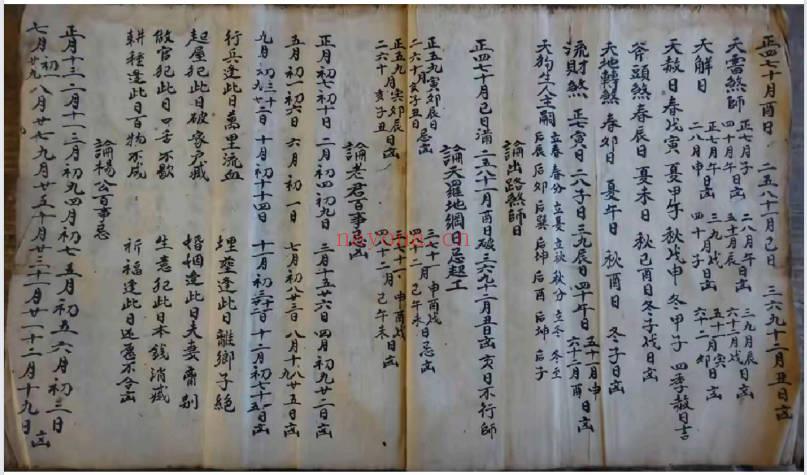 正四七十月酉日 二五八十一月巳日 三六九十二月丑日凶
天雷煞師 正七月子 二八月午日 三九月辰
四十月午 五十一月亥 六十二月戌 日凶
天解日 正七月午日 三九月戌 五十一月寅
二八月申日 四十月子 六十二卯日
天赦日 春戊寅 夏甲午 秋戊申 冬甲子 四季赦日吉
斧頭煞 春辰日 夏未日 秋酉日 冬子戌日凶
天地轉煞 春卯日 夏午日 秋酉日 冬子日凶
流財煞 正七寅日 二八子日 三九辰日 四十午日 五十一月申 六十二月酉 日凶
天狗生人主嗣 立春 春分 立夏 立秋 秋分 立冬 冬至
論出路煞師日
正四七十月巳日滿 二五八十一月酉日破 三六九十二月丑日凶 亥日不行師
論天羅地網日忌起工
正五九寅卯辰日忌凶 三十一月申酉戌日忌凶
二六十亥子丑 四十二月巳午未
正五九月寅卯辰日凶 七十一申酉戌日凶
二六十亥子丑 四十二月巳午未
論老君百事忌凶
正月初七初十日 二月初四初九日 三月十五廿六日 四月初九廿一日凶
五月初一初六日 六月初一日 七月初八廿三日 八月十九廿五日凶
十月初十十四日
行兵逢此日萬里流血 埋塟逢此日離鄉子絕
起屋犯此日破家戶滅 婚姻逢此日夫妻离别
做官犯此日口舌不歇 生意犯此日本錢消滅
耕種逢此日百物不成 祈福逢此日还愿不合凶
論楊公百事忌
正月十三二月十一三月初九四月初七五月初五六月初三日
七月初一廿九八月廿七九月廿五十月廿三十一月廿一十二月十九日凶
nayona.cn